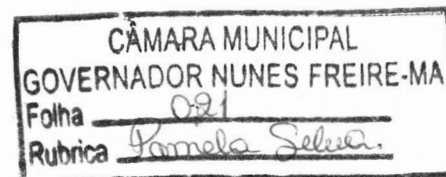 CÂMARA MUNICIPAL
GOVERNADOR NUNES FREIRE-MA
Folha 021
Rubrica Pamela Silva.